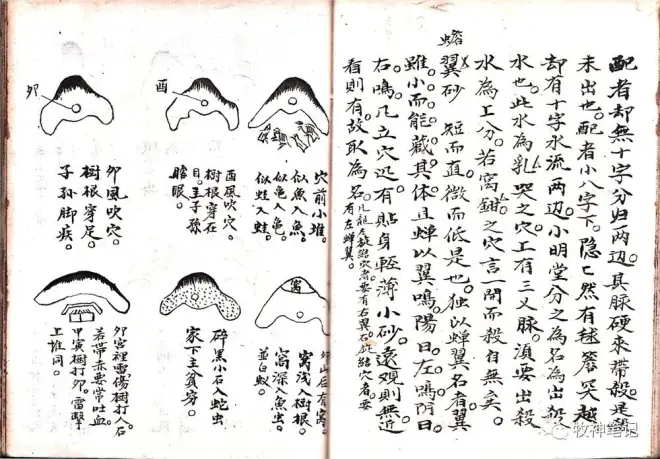 配者却無十字分归两边。具脉硬来帶殺。是殺
未出也。配者小八字下。隐〻然有毬簷笑越
却有十字水流两边。小明堂分之為名為出殺
水也。此水為乳哭之穴。工有三义脉。湏要出殺
水為工分。若窩鉗之穴言一問而殺自無矣。
蟾翼砂 短而直。微而低是也。独以蟬翼名者。翼
雖小而能藏。具体且蟬以翼鳴陽日。左鳴阴日。
右鳴。凡立穴迅有貼身輕薄小砂。遠观則無近
看則有。故取為名。
有左蟬翼。
穴前小堆。
似魚入魚。
似亀入亀。
似蛙入蛙。
酉
酉風吹穴。
樹根穿在
目。主子孫
瞎眼。
卯
卯風吹穴。
樹根穿足。
子孫脚疾。
窩
窩浅樹根。
窩深入魚虫
並白蚁。
碎黑小石入蛇虫
家下主貧穷。
卯宮裡雷傷樹打入石
若帶赤要常吐血
甲寅樹打卯。雷擊
工堆同。
牧神笔记